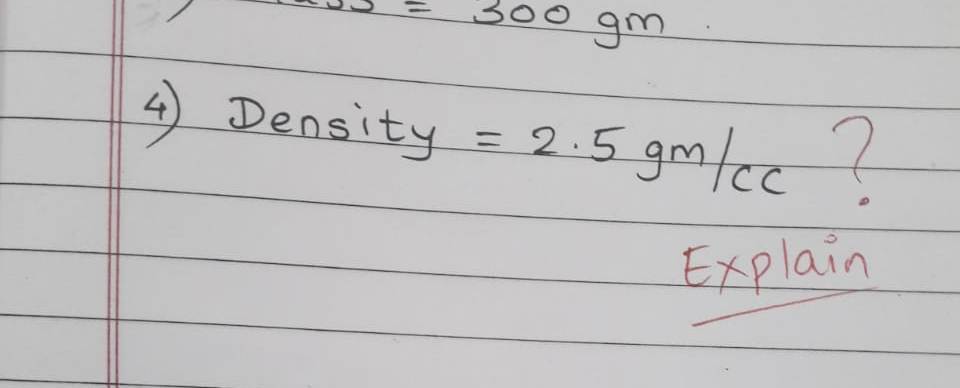 = 300 gm.
4) Density = 2.5 gm/cc ?
Explain